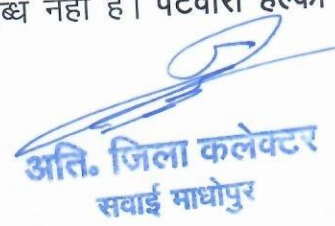 ब्ध नहीं है। पटवारी हल्का
अति. जिला कलेक्टर
सवाई माधोपुर